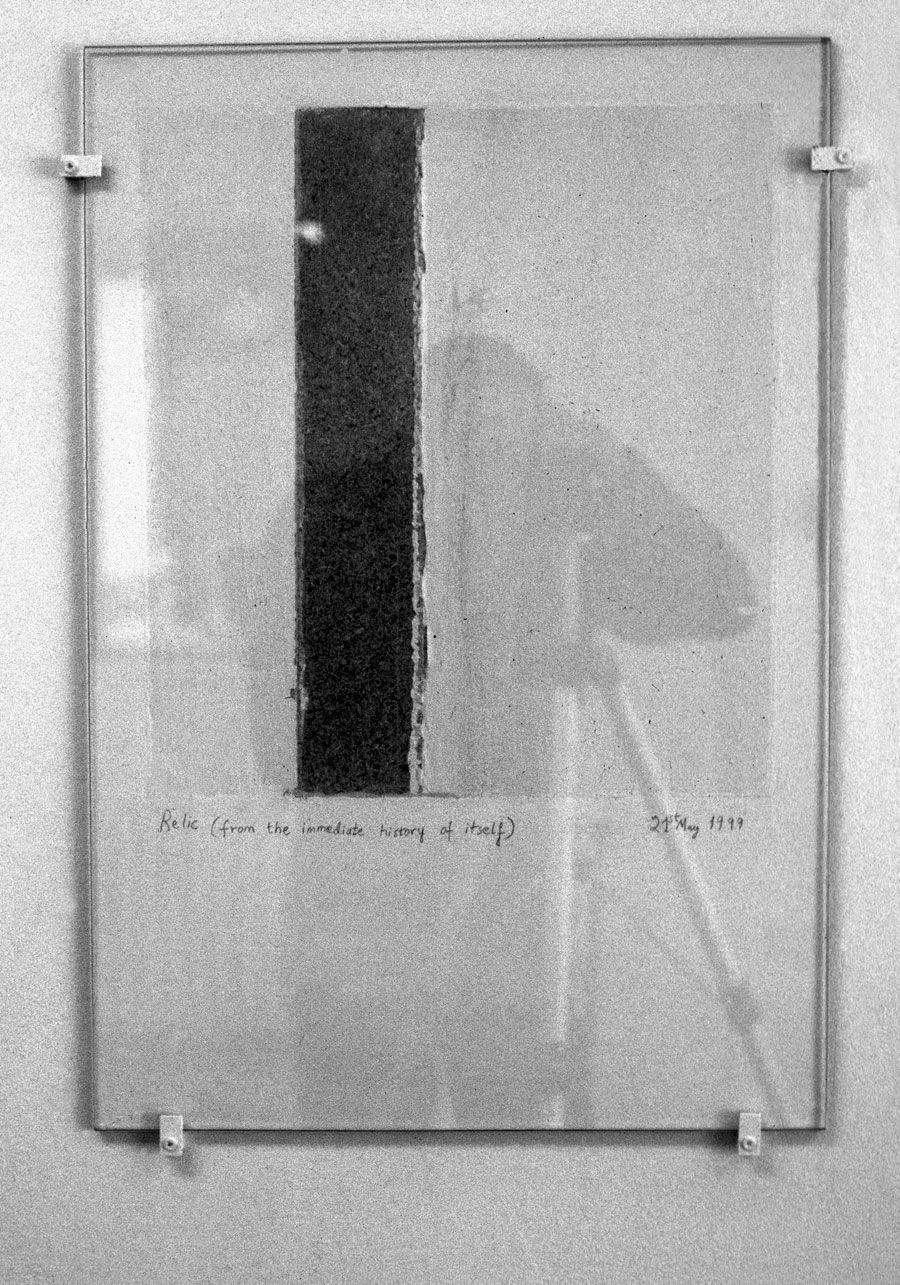 Relic (from the immediate history of itself)
21st May 1999